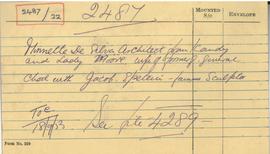 2487/22
2487
MOUNTED S/C
ENVELOPE
Minnette De Silva Architect from Kandy
and Lady Moore wife of former general
Chat with Jacob Epstein - famous Sculptor
See Lte 4289
Form No. 359